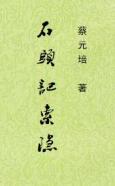 蔡元培 著
石頭記索隱